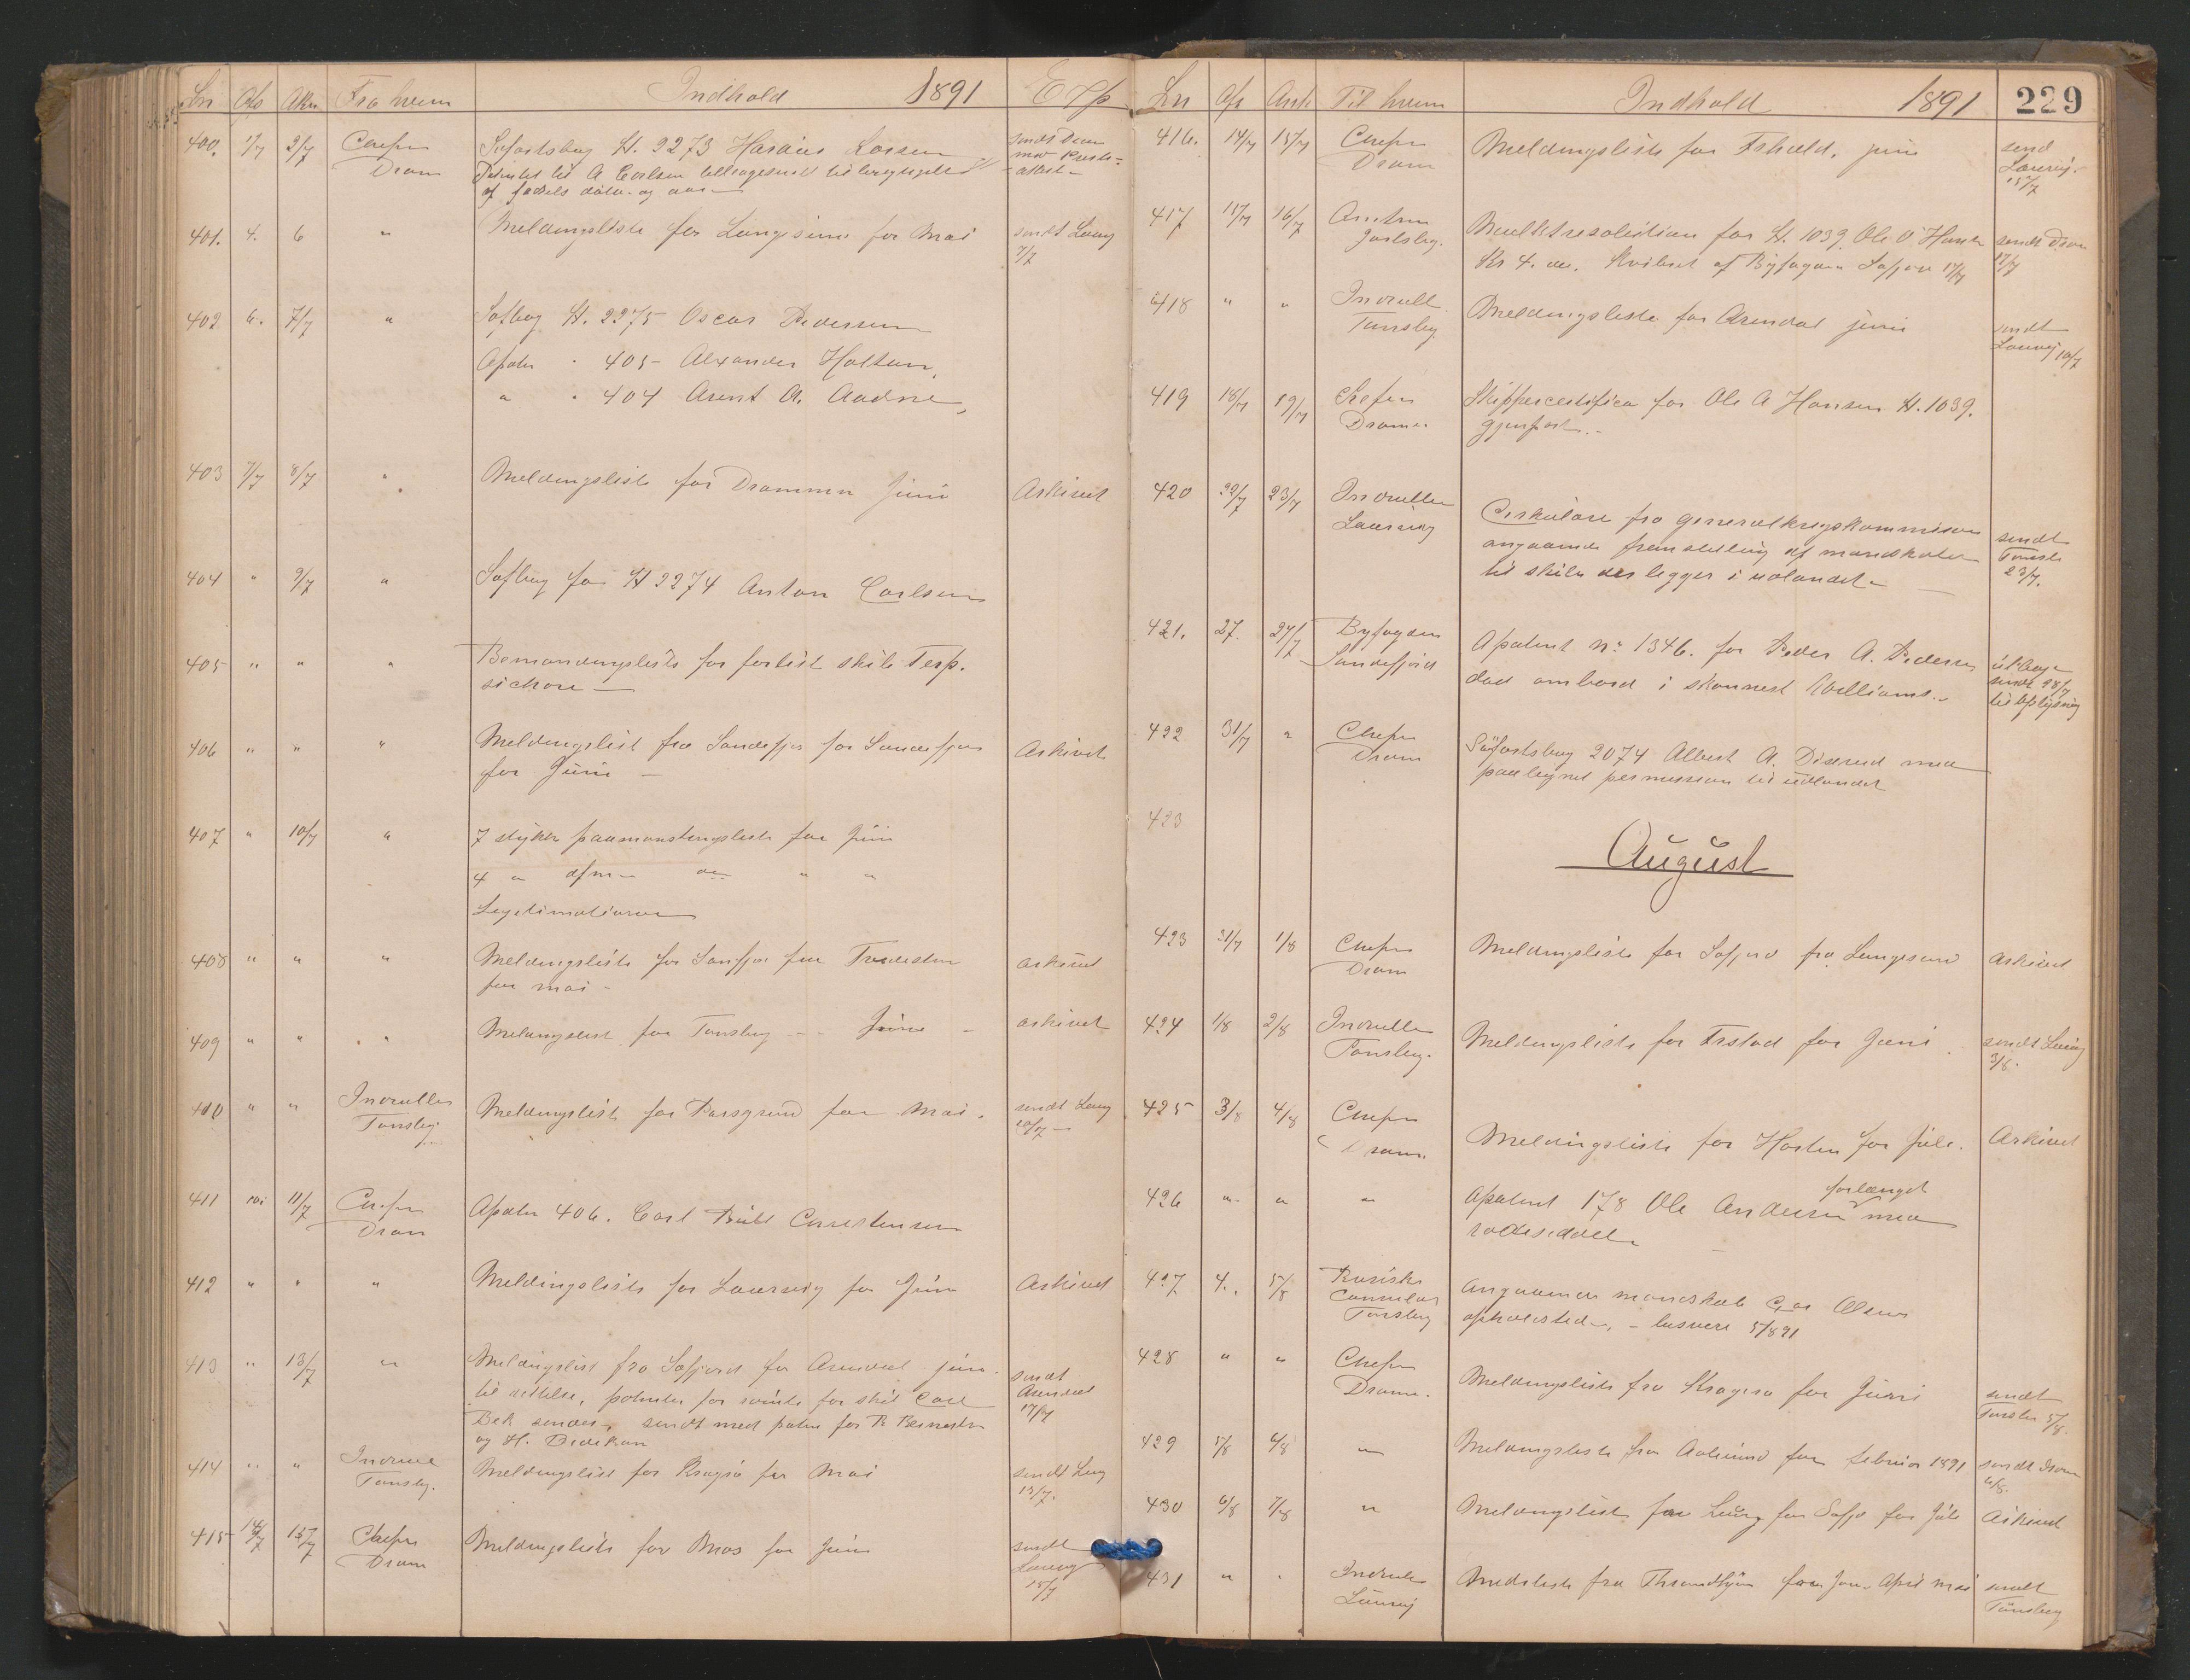 Ln Afs Ank Fra hvem Indhold 1891 Exp
400. 1/7 2/7 Chefen Dram Søfartsbog H. 2273 Haraius Larsen sendt Dram med Preste=
Patentet til A Carlsen af fødsels datum og aar attest
401. 4. 6 " Meldingsliste for Langesund for Mai sendt Laurv 7/7
402 6. 7/7 " Søfbog H. 2275 Oscar Pedersen
Apaten " 405 Alexander Holtan,
" " 404 Arent A. Aadne,
403 7/7 8/7 " Meldingsliste for Drammen Juni Arkivet
404 " 9/7 " Søfbog for H 2274 Anton Carlsen
405 " " " Bemandingsliste for forlist skib Terp.
sichore
406 " " " Meldingslist fra Sandefjor for Sandefjor Arkivet
for Juni
407 " 10/7 " 7 stykker paamønstringsliste for Juni
4 " afm " " "
Legitimationer
408 " " " Meldingsliste for Sanfjor fra Fredrstan arkivet
for mai
409 " " " Meldingslist for Tønsberg Juni arkivet
410 " " Indrulle Tønsbg. Meldingsliste for Porsgrund for Mai. sendt Laurv 10/7
411 10. 11/7 Chefen Dram Apaten 406. Carl Christensen
412 " " " Meldingsliste for Laurvig for Juni Arkivet
413 " 13/7 " Meldingslist fra Safjord for Arendal juni. sendt Arendal 17/7
til rettelse, patenter for rømte for skib Carl
Bek sendes, sendt med paten for
og H. Didikson
414 " " Indrulle Tønsbg. Meldingslist for Kragrø for Mai sendt Laurv 13/7.
415 14/7 15/7 Chefen Dram Meldingsliste for Mos for Juni sendt Laurvig 15/7
Ln Afs Ank Til hvem Indhold 1891 229
416. 14/7 15/7 Chefen Dram Meldingsliste for Fshald, juni send Laurvig. 15/7
417 15/7 16/7 Amtmn Jarlsbg. Mulktresolution for H. 1039 Ole O Hansen sendt Dram 17/7
Kr 4. Kvitert af Byfogden Safjor 17/7
418 " " Indrull Tønsbg. Meldingsliste for Arendal juni sendt Laurvig 16/7
419 18/7 19/7 Chefen Dramn. Skippercertifica for Ole A Hansen H. 1039.
gjenpart.
420 22/7 23/7 Indrulle Laurvig Cirkulære fra generalkrigskommisær
angaaende fremstilling af mandskaber sendt Tønsb 23/7.
til skibe der ligger i udlandet
421. 27. 27/7 Byfogden Sandefjord Apatent No 1346. for Peder A. Pedersen
død ombord i skonnert Williams. sendt 28/7 til Oplysning
422 31/7 " Chefen Dram Søfartsbog 2074 Albert A. Diserud med
paategnet permission til udlandet
423
August
423 31/7 1/8 Chefen Dram Meldingsliste for Safjord fra Langesund Arkivet
424 1/8 2/8 Indrulle Tønsbg. Meldingsliste for Frstad for Juni. sendt Laurvig 3/8.
425 3/8 4/8 Chefen Dram. Meldingsliste for Horten for Juli. Arkivet
426 " " " Apatent 178 Ole Andersen forlænget med
rodesedel.
427 4. 5/8 Rusiske Consulat Tønsberg Angaaende mandskab Olsens
opholdsted, - besvert 5/8 91
428 " " Chefen Dramn. Meldingsliste fra Kragerø for Juni sendt Tønsbr 5/8.
429 5/8 6/8 " Meldingsliste fra Aalesund for februar 1891 sendt Dram 6/8.
430 6/8 7/8 " Meldingslist fra Laurvg for Safjo for Juli Arkivet
431 " " Indrulle Laurvig Meldeliste fra Throndhjem for Jan. April mai sendt Tønsberg